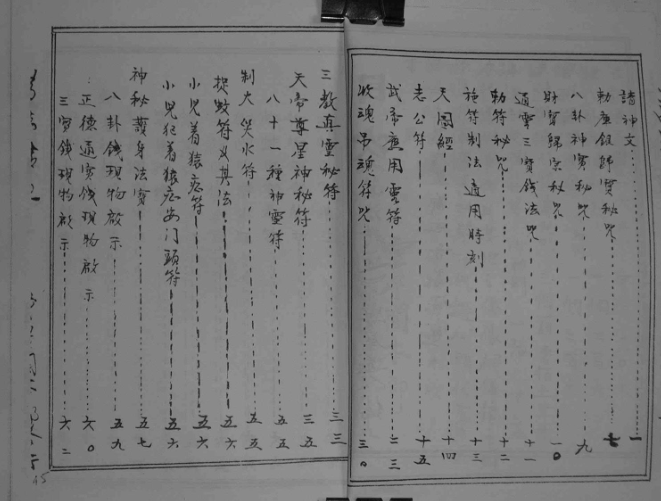 請神文 一
勅應鎮師寶秘咒 七
八卦神寶秘咒 九
財寶歸宗秘咒 一〇
通靈三寶錢法咒 十一
勅符秘咒 十二
施符制法適用時刻 十三
天罡經 十四
志公符 十五
武帝應用靈符 二三
收魂吊魂符咒 三〇
三教真靈秘符 三三
天帝尊星神秘符 三五
八十一種神靈符 五五
制火災水符 五五
捉蚊符及其法 五六
小兒着猿忌符 五六
小兒犯着猿忌安门頭符 五六
神秘護身法寶 五七
八卦錢現物啟示 五九
正德通寶錢現物啟示 六〇
三寶錢現物啟示 六二